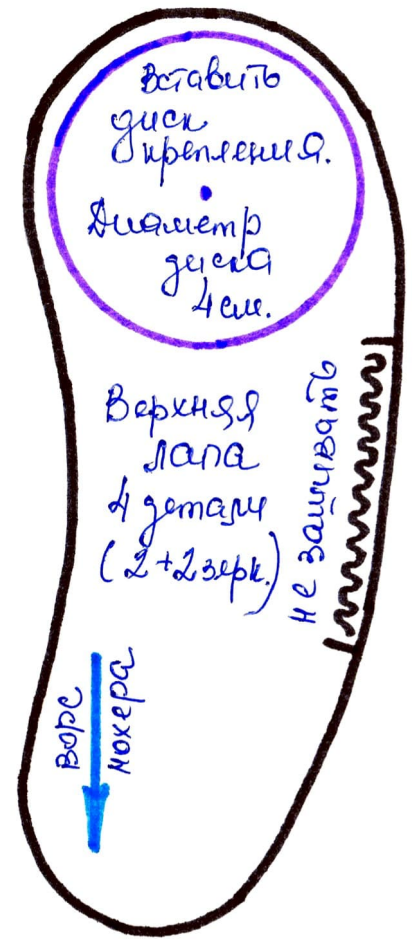 Вставить
диск
крепления.
Диаметр
диска
4 см.
Верхняя
лапа
4 детали
(2+2 зерк.)
не зашивать
ворс
мохера